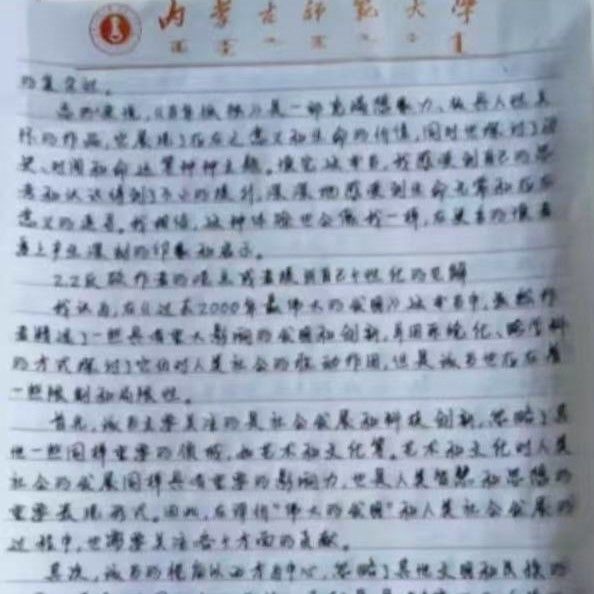 内蒙古师范大学
的复杂性。
总的来说，《百年孤独》是一部充满想象力、极具人性关
怀的作品，它展现了存在之意义和生命的价值，同时也探讨了历
史、时间和命运等种种主题。读完这本书，我感受到自己的思
考和认识得到了不小的提升，深深地感受到生命无常和存在
意义的追寻。我相信，这种体验也会像我一样，在更多的读者
身上产生深刻的印象和启示。
2.2反驳作者的观点或者提出自己个性化的见解
我认为，在《过去2000年最伟大的发明》这本书中，虽然作
者精选了一些具有重大影响的发明和创新，并用系统化、跨学科
的方式探讨了它们对人类社会的推动作用，但是该书也存在着
一些限制和局限性。
首先，该书主要关注的是社会发展和科技创新，忽略了其
他一些同样重要的领域，如艺术和文化等。艺术和文化对人类
社会的发展同样具有重要的影响力，也是人类智慧和思想的
重要表现形式。因此，在评价“伟大的发明”和人类社会发展的
过程中，也需要关注各个方面的贡献。
其次，该书的视角以西方为中心，忽略了其他文明和民族的